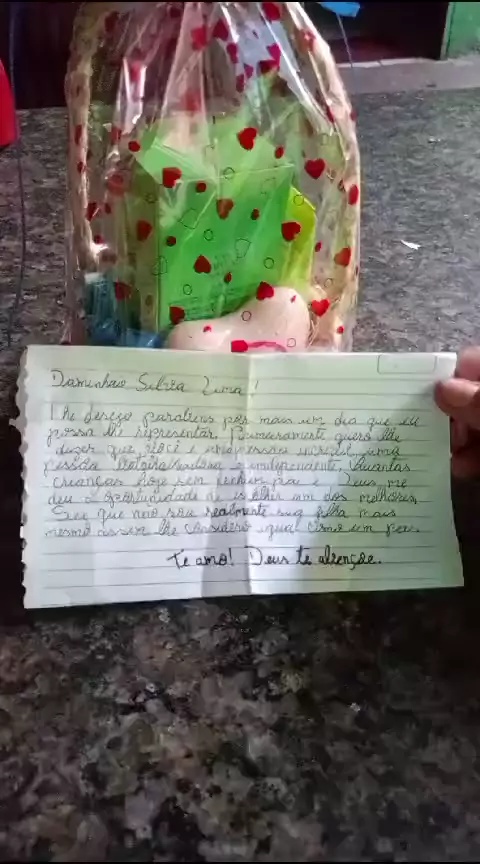 Daminhao Silvia Lima!
Lhe desejo parabens por mais um dia que eu
possa lhe representar. Primeiramente quero lhe
dizer que você e uma pessoa incrivel, uma
pessoa batalhadora e independente. Quantas
crianças hoje sem nenhum pai e Deus me
deu a oportunidade de escolher um dos melhores,
Sei que não sou realmente sua filha mais
mesmo assim lhe considero igual como um pai.
Te amo! Deus te abençoe.